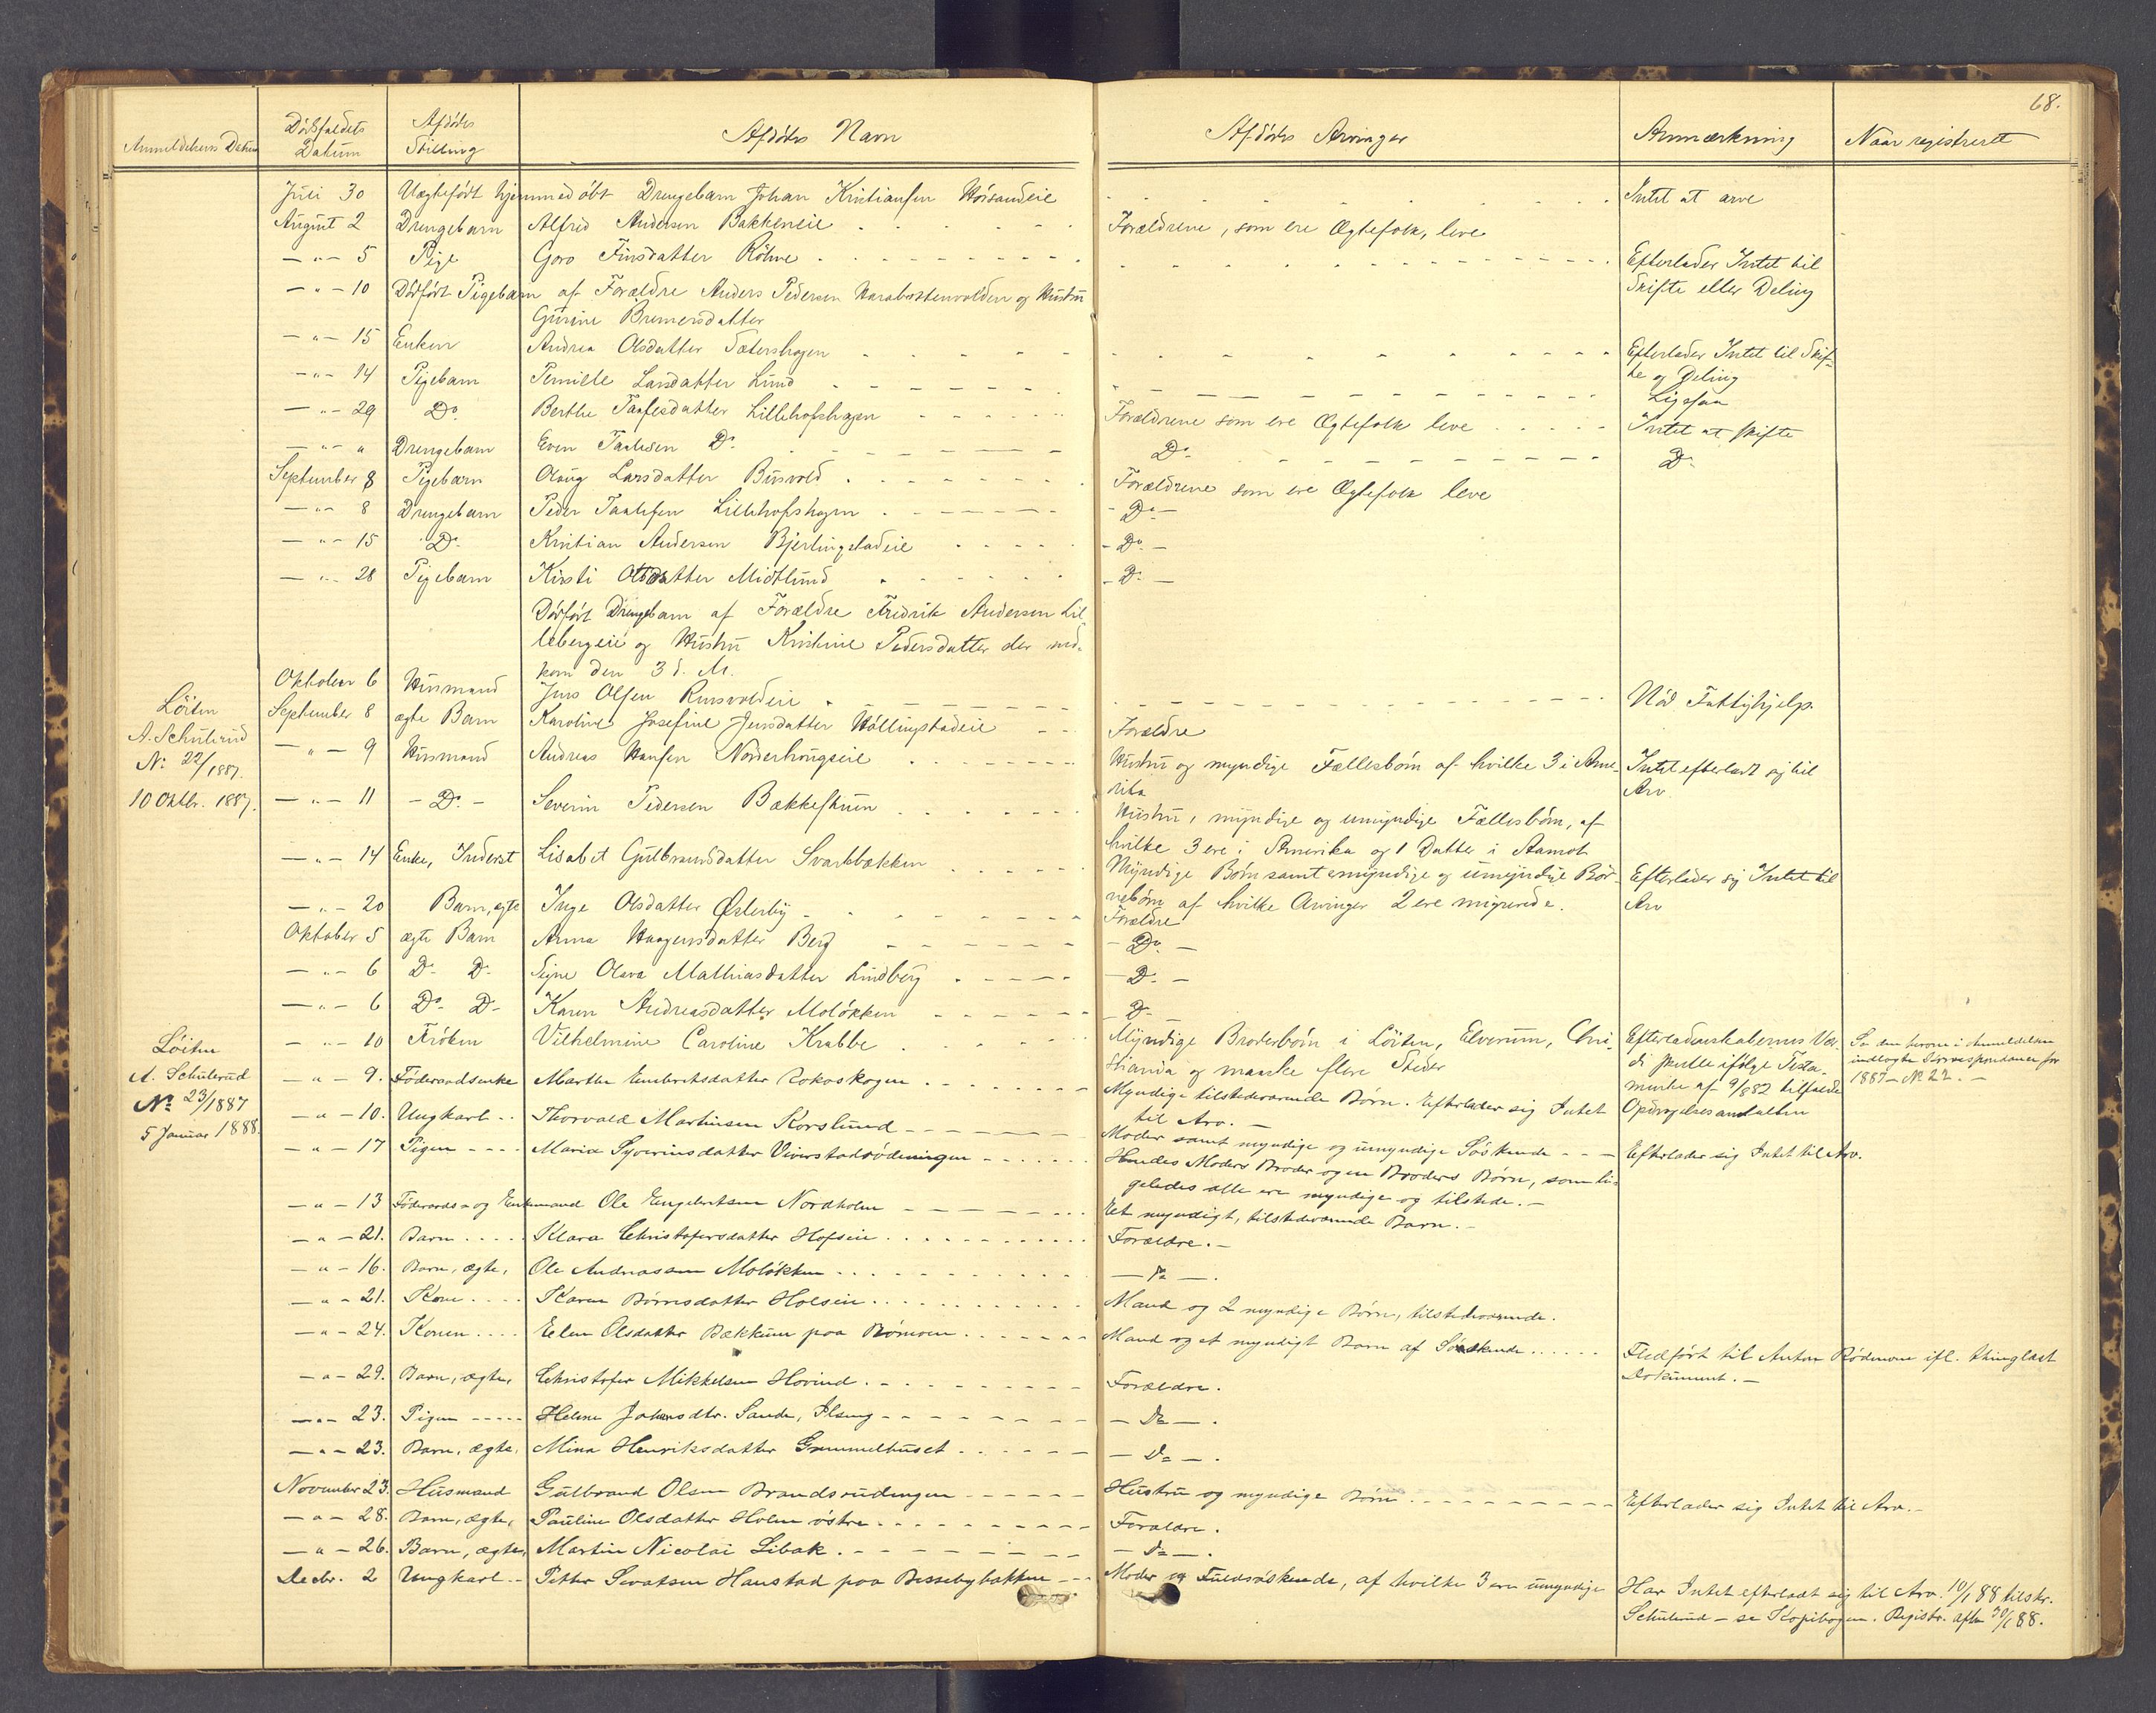 68.
Anmeldelsens Datum Dödsfaldets Datum Afdödes Stilling Afdödes Navn Afdödes Arvinger Anmærkning Naar registreret
Juli 30 Uægtefödt hjemmedöbt Drengebarn Johan Kristiansen Horsandeie Intet at arve
August 2 Drengebarn Alfred Andersen Bakkeneie Forældrene, som ere Ægtefolk, leve
— " — 5 Pige Goro Finsdatter Röhne Efterlader Intet til
Skifte eller Deling
— " — 10 Dödfödt Pigebarn af Forældre Anders Pedersen og Hustru
Gurine Bremersdatter
— " — 15 Enken Andrea Olsdatter Sætershagen Efterlader Intet til Skif-
te og Deling
— " — 14 Pigebarn Pernille Larsdatter Lund Ligesaa
— " — 29 Do. Berthe Paulsdatter Lillehofshagen Forældrene som ere Ægtefolk leve Intet at skifte
— " — " Drengebarn Even Paulsen Do. Do. Do.
September 8 Pigebarn Olaug Larsdatter Busvold Forældrene som ere Ægtefolk leve
— " — 8 Drengebarn Peder Paulsen Lillehofshagen — Do —
— " — 15 Do. Kristian Andersen Bjerlingstadeie — Do —
— " — 28 Pigebarn Kirsti Olsdatter Midtlund — Do —
Dödfödt Drengebarn af Forældre Fredrik Andersen Lil-
lebergeie og Hustru Kristine Pedersdatter der ned-
kom den 3 d. M.
Oktober 6 Husmand Jens Olsen Rusvoldeie Nöd Fattighjelp.
Löiten
A. Schulerud
No 22/1887.
10 Oktbr. 1887.
September 8 ægte Barn Karoline Josefine Jensdatter Hollingstadeie Forældre
— " — 9 Husmand Andreas Hansen Norderhougseie Hustru og myndige Fællesbörn af hvilke 3 i Ame- Intet efterladt sig til
rika Arv.
— " — 11 — Do. — Severin Pedersen Bækkeskuen Hustru, myndige og umyndige Fællesbörn, af
hvilke 3 ere i Amerika og 1 Datter i Aamot
— " — 14 Enke, Inderst Lisabet Gulbransdatter Svartbækken Myndige Börn samt myndige og umyndige Bör- Efterlader sig Intet til
nebörn af hvilke Arvinger 2 ere emigrerede. Arv
— " — 20 Barn, ægte Inge Olsdatter Østerby Forældre
Oktober 5 ægte Barn Anna Haagensdatter Berg — Do —
— " — 6 Do. Do. Signe Olava Mathiasdatter Lindberg — Do. —
— " — 6 Do. Do. Karen Andreasdatter Molökken — Do. —
Löiten
A. Schulerud
No 23/1887
5 Januar 1888.
— " — 10 Fröken Vilhelmine Caroline Krabbe Myndige Broderbörn i Löiten, Elverum, Chri- Efterladenskabernes Vær- Se den herom i Anmeldelsen
stiania og maaske flere Steder di skulle ifölge Testa- indtagte Correspondance for
mente af 9/1 882 tilfalde 1887 — No 22. —
Opdragelsesanstalten
— " — 9. Föderaadsenke Marthe Embretsdatter Rokoskogen Myndige tilstedeværende Börn. Efterlader sig Intet
til Arv. —
— " — 10. Ungkarl Thorvald Martinsen Korslund Moder samt myndige og umyndige Söskende Efterlader sig Intet til Arv.
— " — 17 Pigen Maria Syverinsdatter Viverstadrödningen Hendes Moders Broder og en Broders Börn, som li-
geledes alle ere myndige og tilstede. —
— " — 13 Föderaads- og Enkemand Ole Engebretsen Nordholm Et myndigt, tilstedeværende Barn. —
— " — 21. Barn Klara Christofersdatter Hofseie Forældre. —
— " — 16. Barn, ægte, Ole Andreassen Molökken — Do —.
— " — 21. Kone Karen Börresdatter Holseie Mand og 2 myndige Börn, tilstedeværende.
— " — 24. Konen Eelen Olsdatter Bækkum paa Römoen Mand og et myndigt Barn af Söskende Fledfört til Anton Rödmoen ifl. thinglæst
Dokument. —
— " — 29. Barn, ægte, Christofer Mikkelsen Hovind Forældre.
— " — 23. Pigen Helene Johansdtr. Sande, Ilseng — Do —.
— " — 23. Barn, ægte, Mina Henriksdatter Grummelhuset — Do —.
November 23. Husmand Gulbrand Olsen Brandsrudengen Hustru og myndige Börn Efterlader sig Intet til Arv. —
— " — 28. Barn, ægte, Pauline Olsdatter Holen östre Forældre.
— " — 26. Barn, ægte, Martin Nicolai Libak — Do —.
Decbr. 2 Ungkarl Petter Sivatsen Haustad paa Bessebybakken Moder og Fuldsöskende, af hvilke 3 ere umyndige Har Intet efterladt sig til Arv. 10/1 88 tilskr.
Schulerud — se Kopibogen. Registr. afh. 30/1 88.